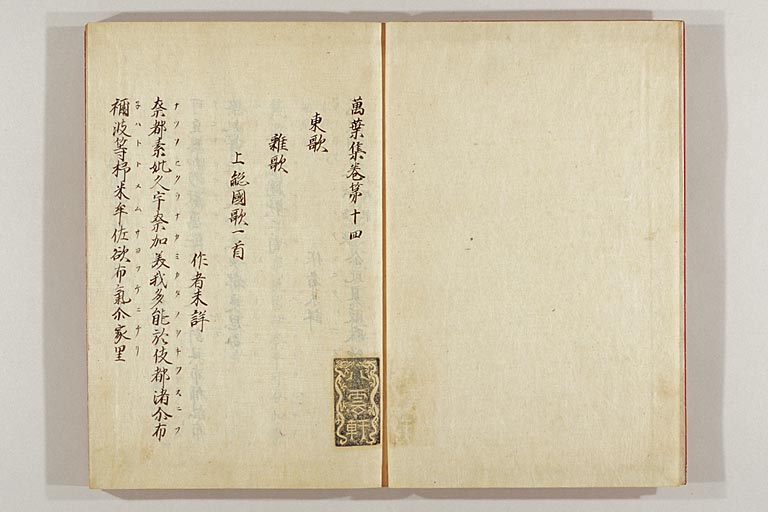 萬葉集卷第十四
東歌
雜歌
上総國歌一首
作者未詳
奈都素妣久宇奈加美我多能於伎都渚尒布
ナツソヒクウナカミカタノヲキツスニフ
祢波等杼米牟佐欲布氣尒家里
ネハトトメムサヨフケニケリ
八雲軒